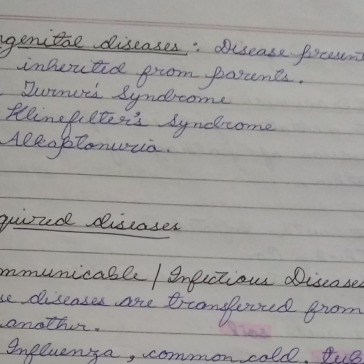 genital diseases : Disease present
inherited from parents.
Turner's Syndrome
Klinefelter's Syndrome
Alkaptonuria.
quired diseases
mmunicable / Infectious Diseases
se diseases are transferred from
another.
Influenza, common cold,